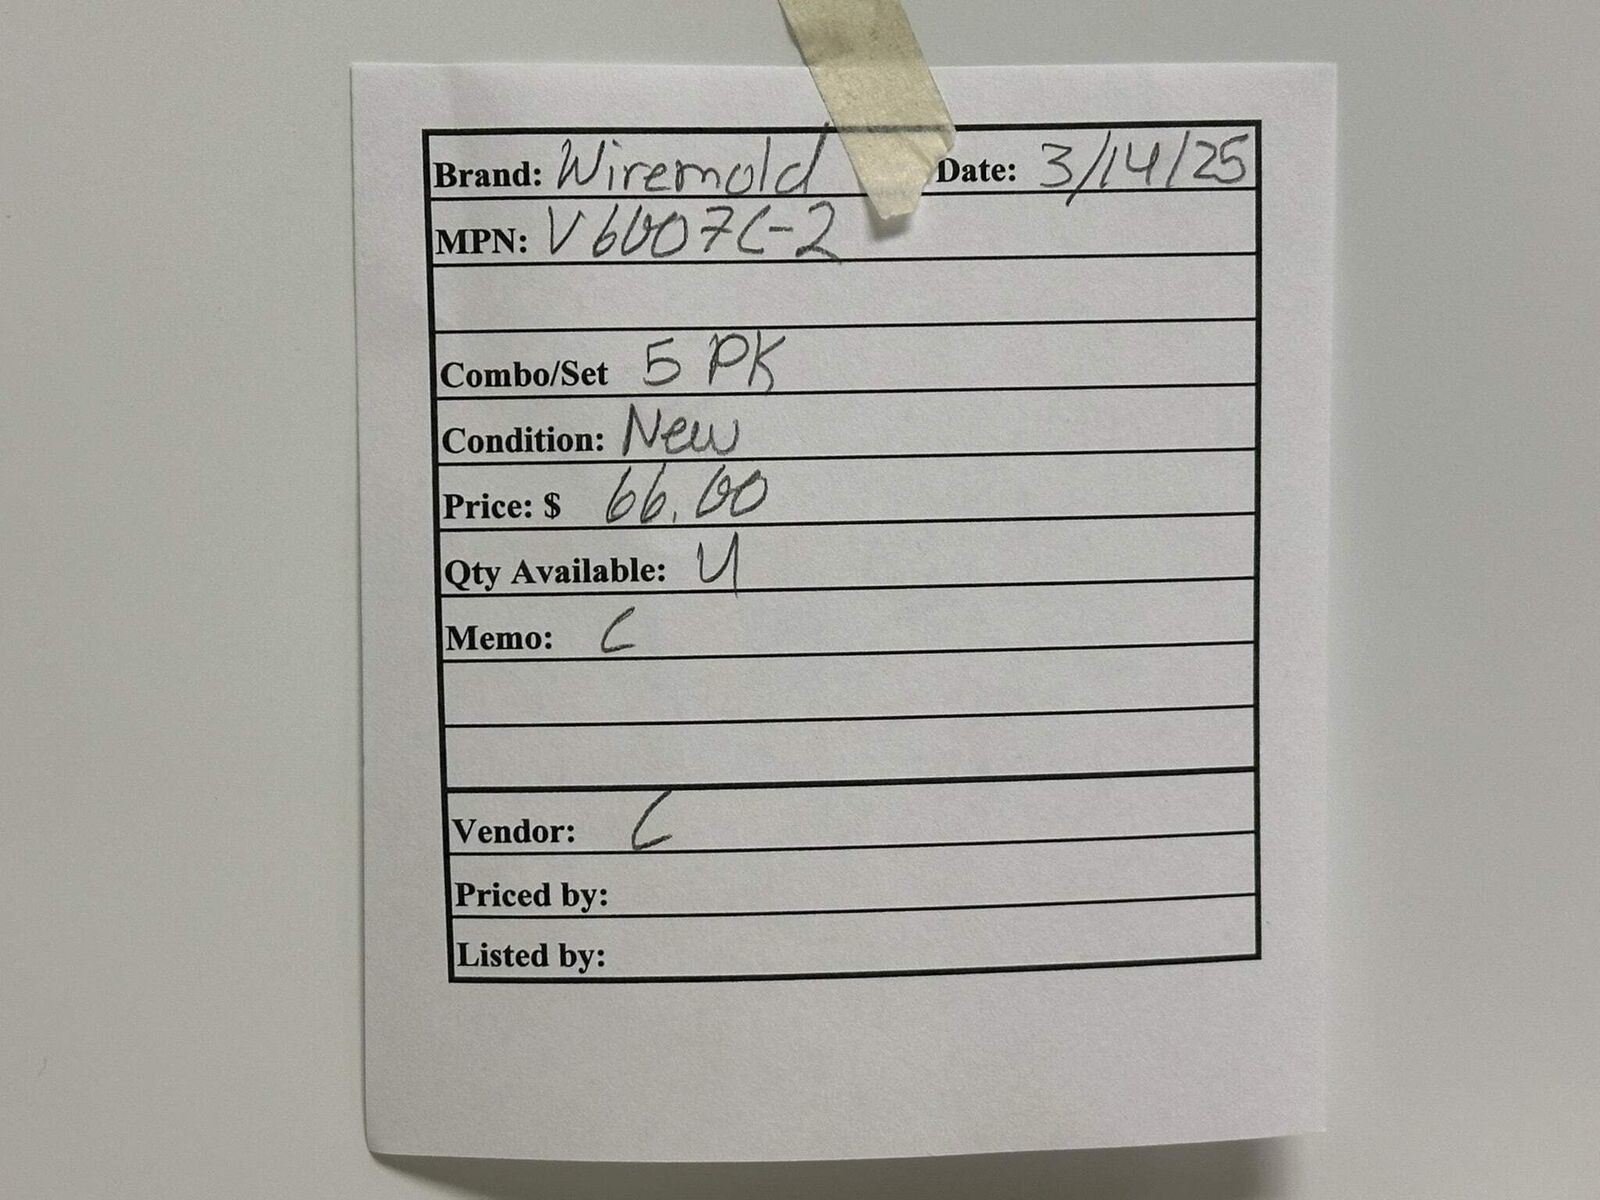 Brand: Wiremold Date: 3/14/25
MPN: V6007C-2
Combo/Set 5 PK
Condition: New
Price: $ 66.00
Qty Available: 4
Memo: C
Vendor: C
Priced by:
Listed by: